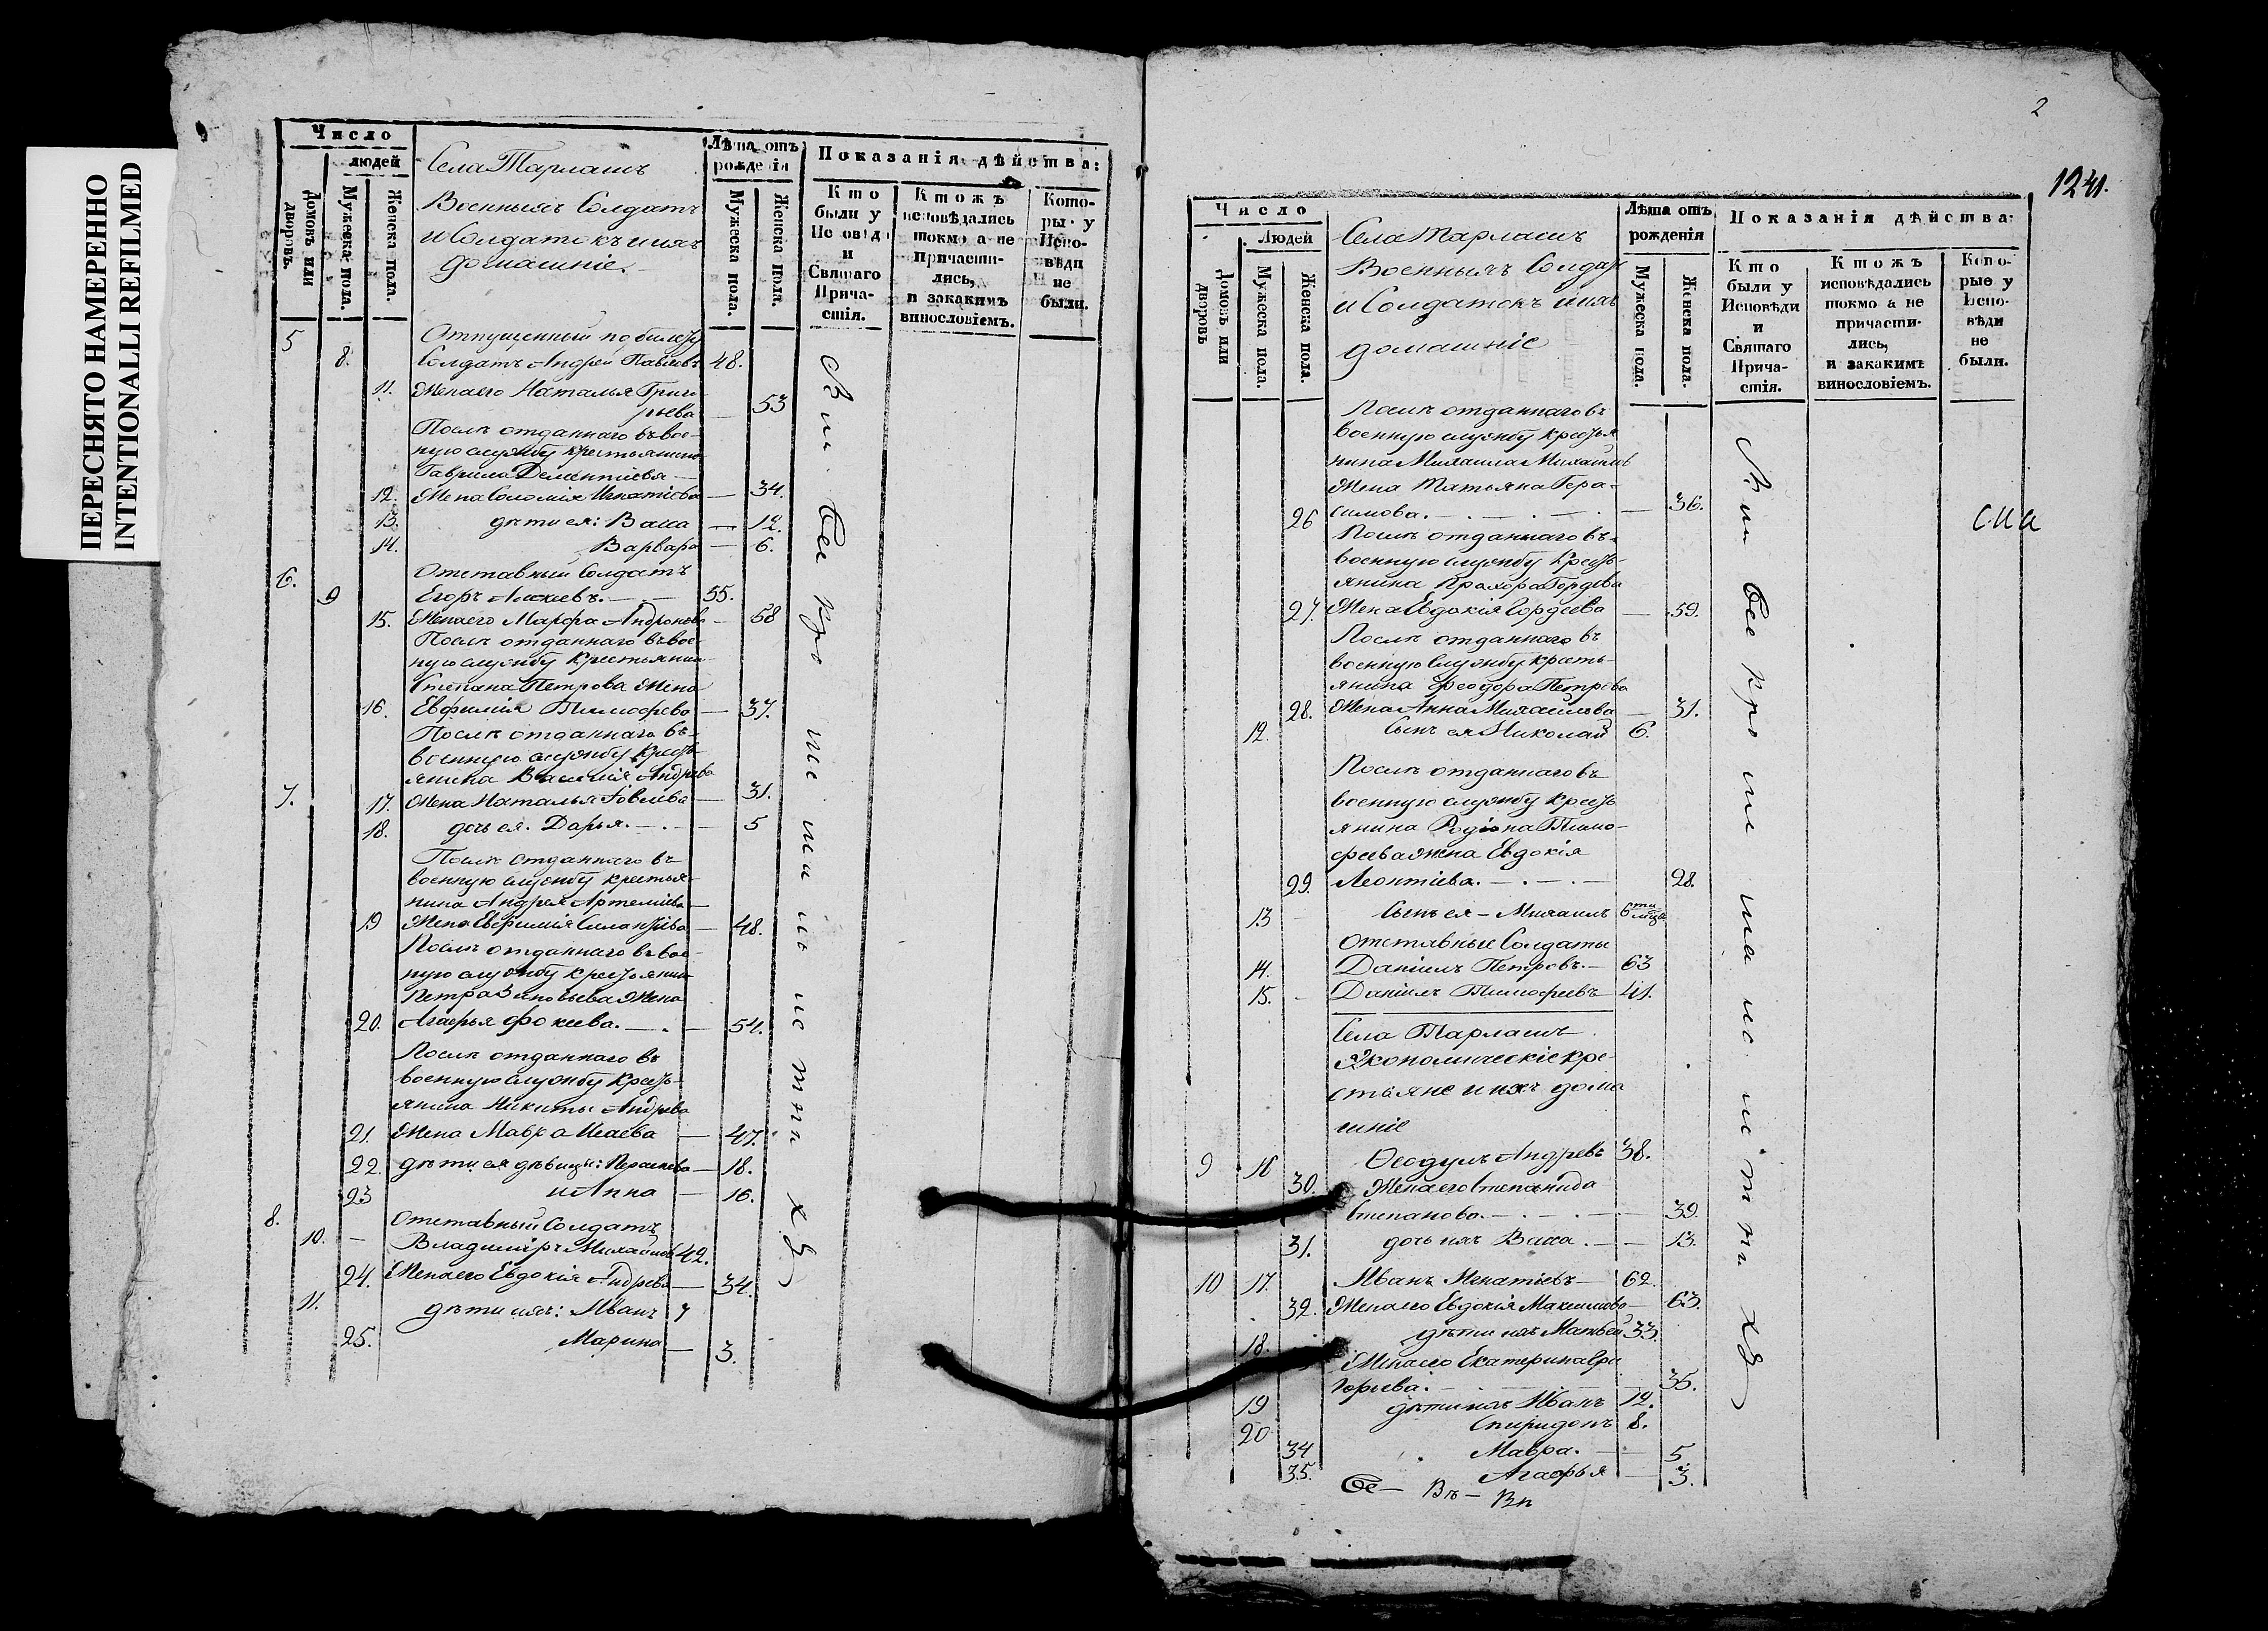 ПЕРЕСНЯТО НАМЕРЕННО
INTENTIONALLI REFILMED
Число
людей
Домовъ или дворовъ.
Мужеска пола.
Женска пола.
Села Тарлашъ
Военныхъ Солдатъ
и Солдатокъ и ихъ
домашніе.
Лѣта отъ рожденія
Мужеска пола.
Женска пола.
Показанія дѣйства:
Кто были у Исповѣди и Святаго Причастія.
Ктожъ исповѣдались токмо а не причастились, и закакимъ винословіемъ.
Которы у Исповѣди не были.
5 Отпущенный по билету
8. Солдатъ Андрей Павловъ 48.
11. Жена его Наталья Григо-
рьева — 53
Послѣ отданнаго въ вое-
ную службу крестьянина
Гаврила Дементіева —
12. Жена Соломія Игнатіева — 34.
13. дѣти ея: Васса — 12.
14. Варвара — 6.
6. Отставный Солдатъ
9 Егоръ — 55.
15. Жена его Марфа Андронова — 58
Послѣ отданнаго въ вое-
ную службу крестьянина
Степана Петрова Жена
16. Евфимія Тимофеева — 37.
Послѣ отданнаго въ-
военную службу кресть-
янина Василія Андреева
7. 17. Жена Наталья Іовлева — 31.
18. дочь ея. Дарья. — 5
Послѣ отданнаго въ
военную службу крестья-
нина Андрея Артеміева
19 Жена Евфимія — 48.
Послѣ отданнаго въ вое-
ную службу крестьянина
Петра Зиновьева Жена
20. Агафья Фокеева. — 54.
Послѣ отданнаго въ
военную службу кресть-
янина Никиты Андреева
21. Жена Мавра Исаева — 47.
22. дѣти ея дѣвицы: Параскева — 18.
23 и Анна — 16.
8. Отставный Солдатъ
10. — Владиміръ Михайловъ 42.
24. Жена его Евдокія Андреева — 34.
11. дѣти ихъ: Иванъ 7
25. Марина — 3.
2
1241.
Число
Людей
Домовъ или дворовъ
Мужеска пола.
Женска пола.
Села Тарлашъ
Военныхъ Солдатъ
и Солдатокъ и ихъ
домашніе
Лѣта отъ рожденія
Мужеска пола.
Женска пола.
Показанія дѣйства:
Кто были у Исповѣди и Святаго Причастія.
Ктожъ исповѣдались токмо а не причастились, и закакимъ винословіемъ.
Которые у Исповѣди не были.
Послѣ отданнаго въ
военную службу крестья
нина Михаила Михайлов
Жена Татьяна Гера-
26 симова. — 36.
Послѣ отданнаго въ-
военную службу кресть-
янина Прохора Гордѣва
27. Жена Евдокія Гордеева — 59.
Послѣ отданнаго въ
военную службу кресть-
янина Феодора Петрова
28. Жена Анна Михайлова — 31.
12. Сынъ ея Николай 6.
Послѣ отданнаго въ
военную службу кресть
янина Родіона Тимо-
феева жена Евдокія
29. Леонтіева. — 28.
13 Сынъ ея — Михаилъ 6 ти
Отставные Солдаты
14. Даніилъ Петровъ. — 63
15. Даніилъ Тимофеевъ 41.
Села Тарлашъ
Экономическіе кре-
стьяне и ихъ дома
шніе
9 16 Ѳеодулъ Андреевъ 38.
30. Жена его Степанида
Степанова. — 39.
31. дочь ихъ Васса. — 13.
10 17. Иванъ Игнатіевъ — 62.
32. Жена его Евдокія Максимова — 63.
18. дѣти ихъ Матвей 33.
Жена его Екатерина Гри
горьева. — 35.
19 дѣти ихъ Иванъ 12.
20 Спиридонъ 8.
34 Мавра. — 5
35. Агафья — 3.